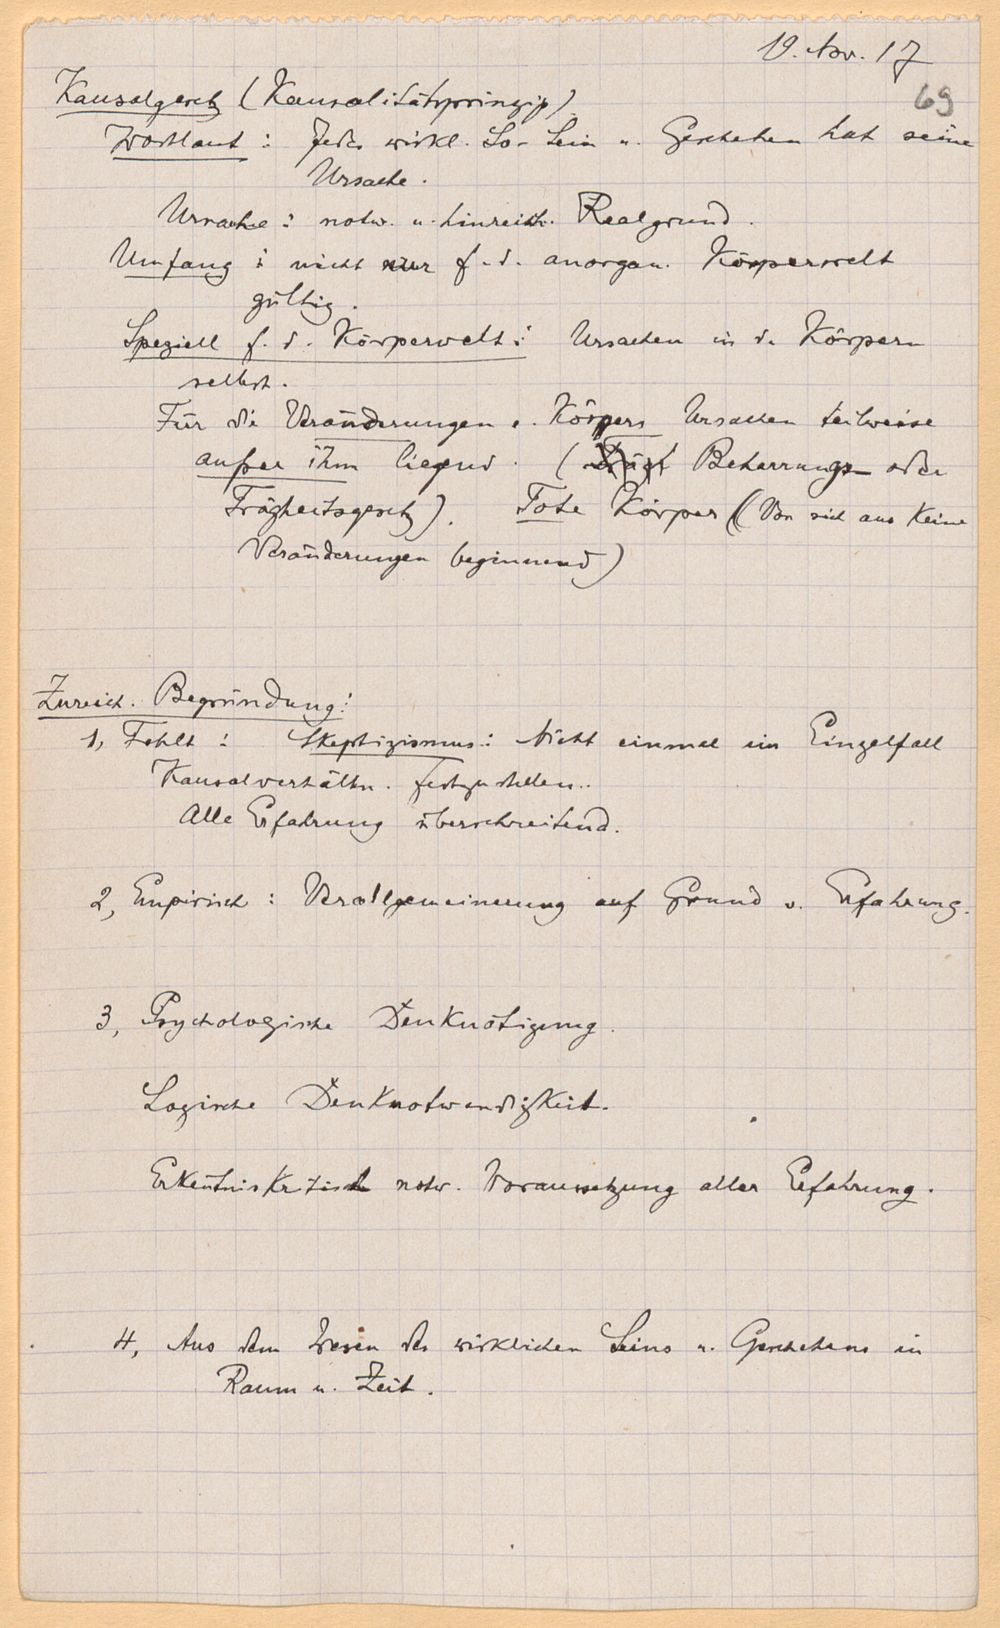 19. Nov. 17
69
Kausalgesetz (Kausalitätsprinzip)
Wortlaut : Jedes wirkl. So-Sein u. Geschehen hat seine
Ursache.
Ursache : notw. u. hinreich. Realgrund.
Umfang : nicht nur f. d. anorgan. Körperwelt
gültig.
Speziell f. d. Körperwelt : Ursachen in d. Körpern
selbst.
Für die Veränderungen e. Körpers Ursachen teilweise
außer ihm liegend. ( Beharrungs- oder
Trägheitsgesetz). Tote Körper ((Von sich aus keine
Veränderungen beginnend)
Zureich. Begründung :
1, Fehlt : Skeptizismus : Nicht einmal im Einzelfall
Kausalverhältn. festzustellen..
Alle Erfahrung überschreitend.
2, Empirisch : Verallgemeinerung auf Grund v. Erfahrung.
3, Psychologische Denknötigung.
Logische Denknotwendigkeit.
Erkentniskritisch notw. Voraussetzung aller Erfahrung.
4, Aus dem Wesen des wirklichen Seins u. Geschehens in
Raum u. Zeit.